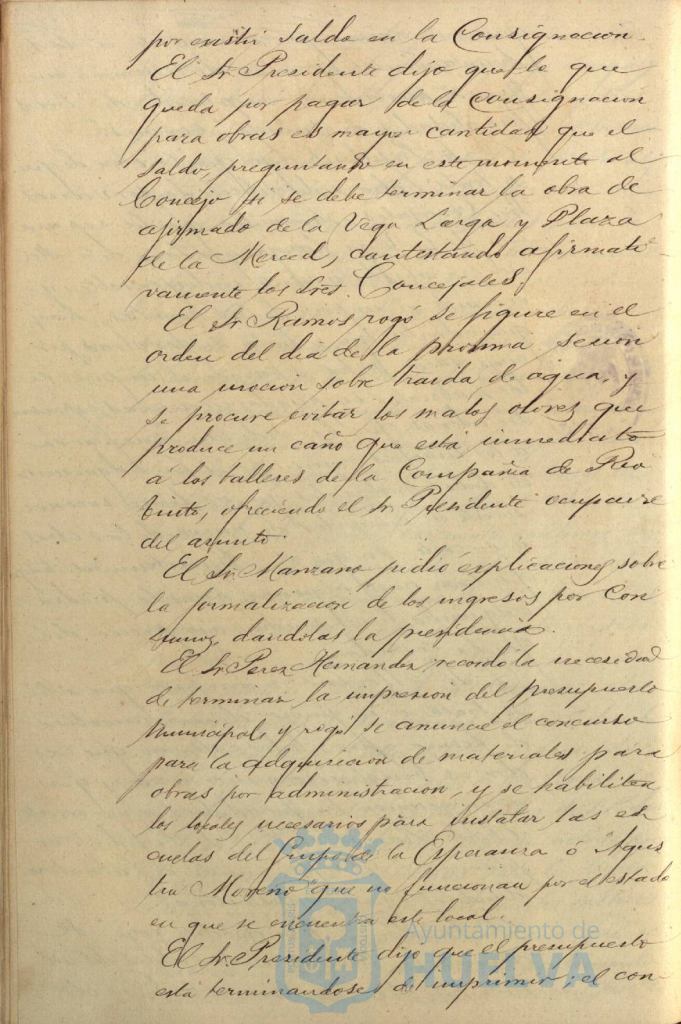 por existir saldo en la Consignacion.
El Sr. Presidente dijo que lo que
queda por pagar de la consignacion
para obras es mayor cantidad que el
saldo, preguntando en este momento al
Concejo si se debe terminar la obra de
afirmado de la Vega Larga y Plaza
de la Merced, contestando afirmati-
vamente los Sres. Concejales.
El Sr. Ramos rogó se figure en el
orden del dia de la proxima sesion
una mocion sobre traida de agua, y
se procure evitar los malos olores que
produce un caño que está inmediato
á los talleres de la Compañia de Rio
tinto, ofreciendo el Sr. Presidente ocuparse
del asunto.
El Sr. Manzano pidió explicaciones sobre
la formalizacion de los ingresos por Con
sumos, dandolas la presidencia.
El Sr. Perez Hernandez recordó la necesidad
de terminar la impresion del presupuesto
Municipal y rogó se anuncie el concurso
para la adquisicion de materiales para
obras por administracion, y se habiliten
los locales necesarios para instalar las es
cuelas del Grupo de la Esperanza ó "Agus
tin Moreno" que no funcionan por el estado
en que se encuentra este local.
El Sr. Presidente dijo que el presupuesto
está terminandose de imprimir; el con-
Ayuntamiento de
HUELVA